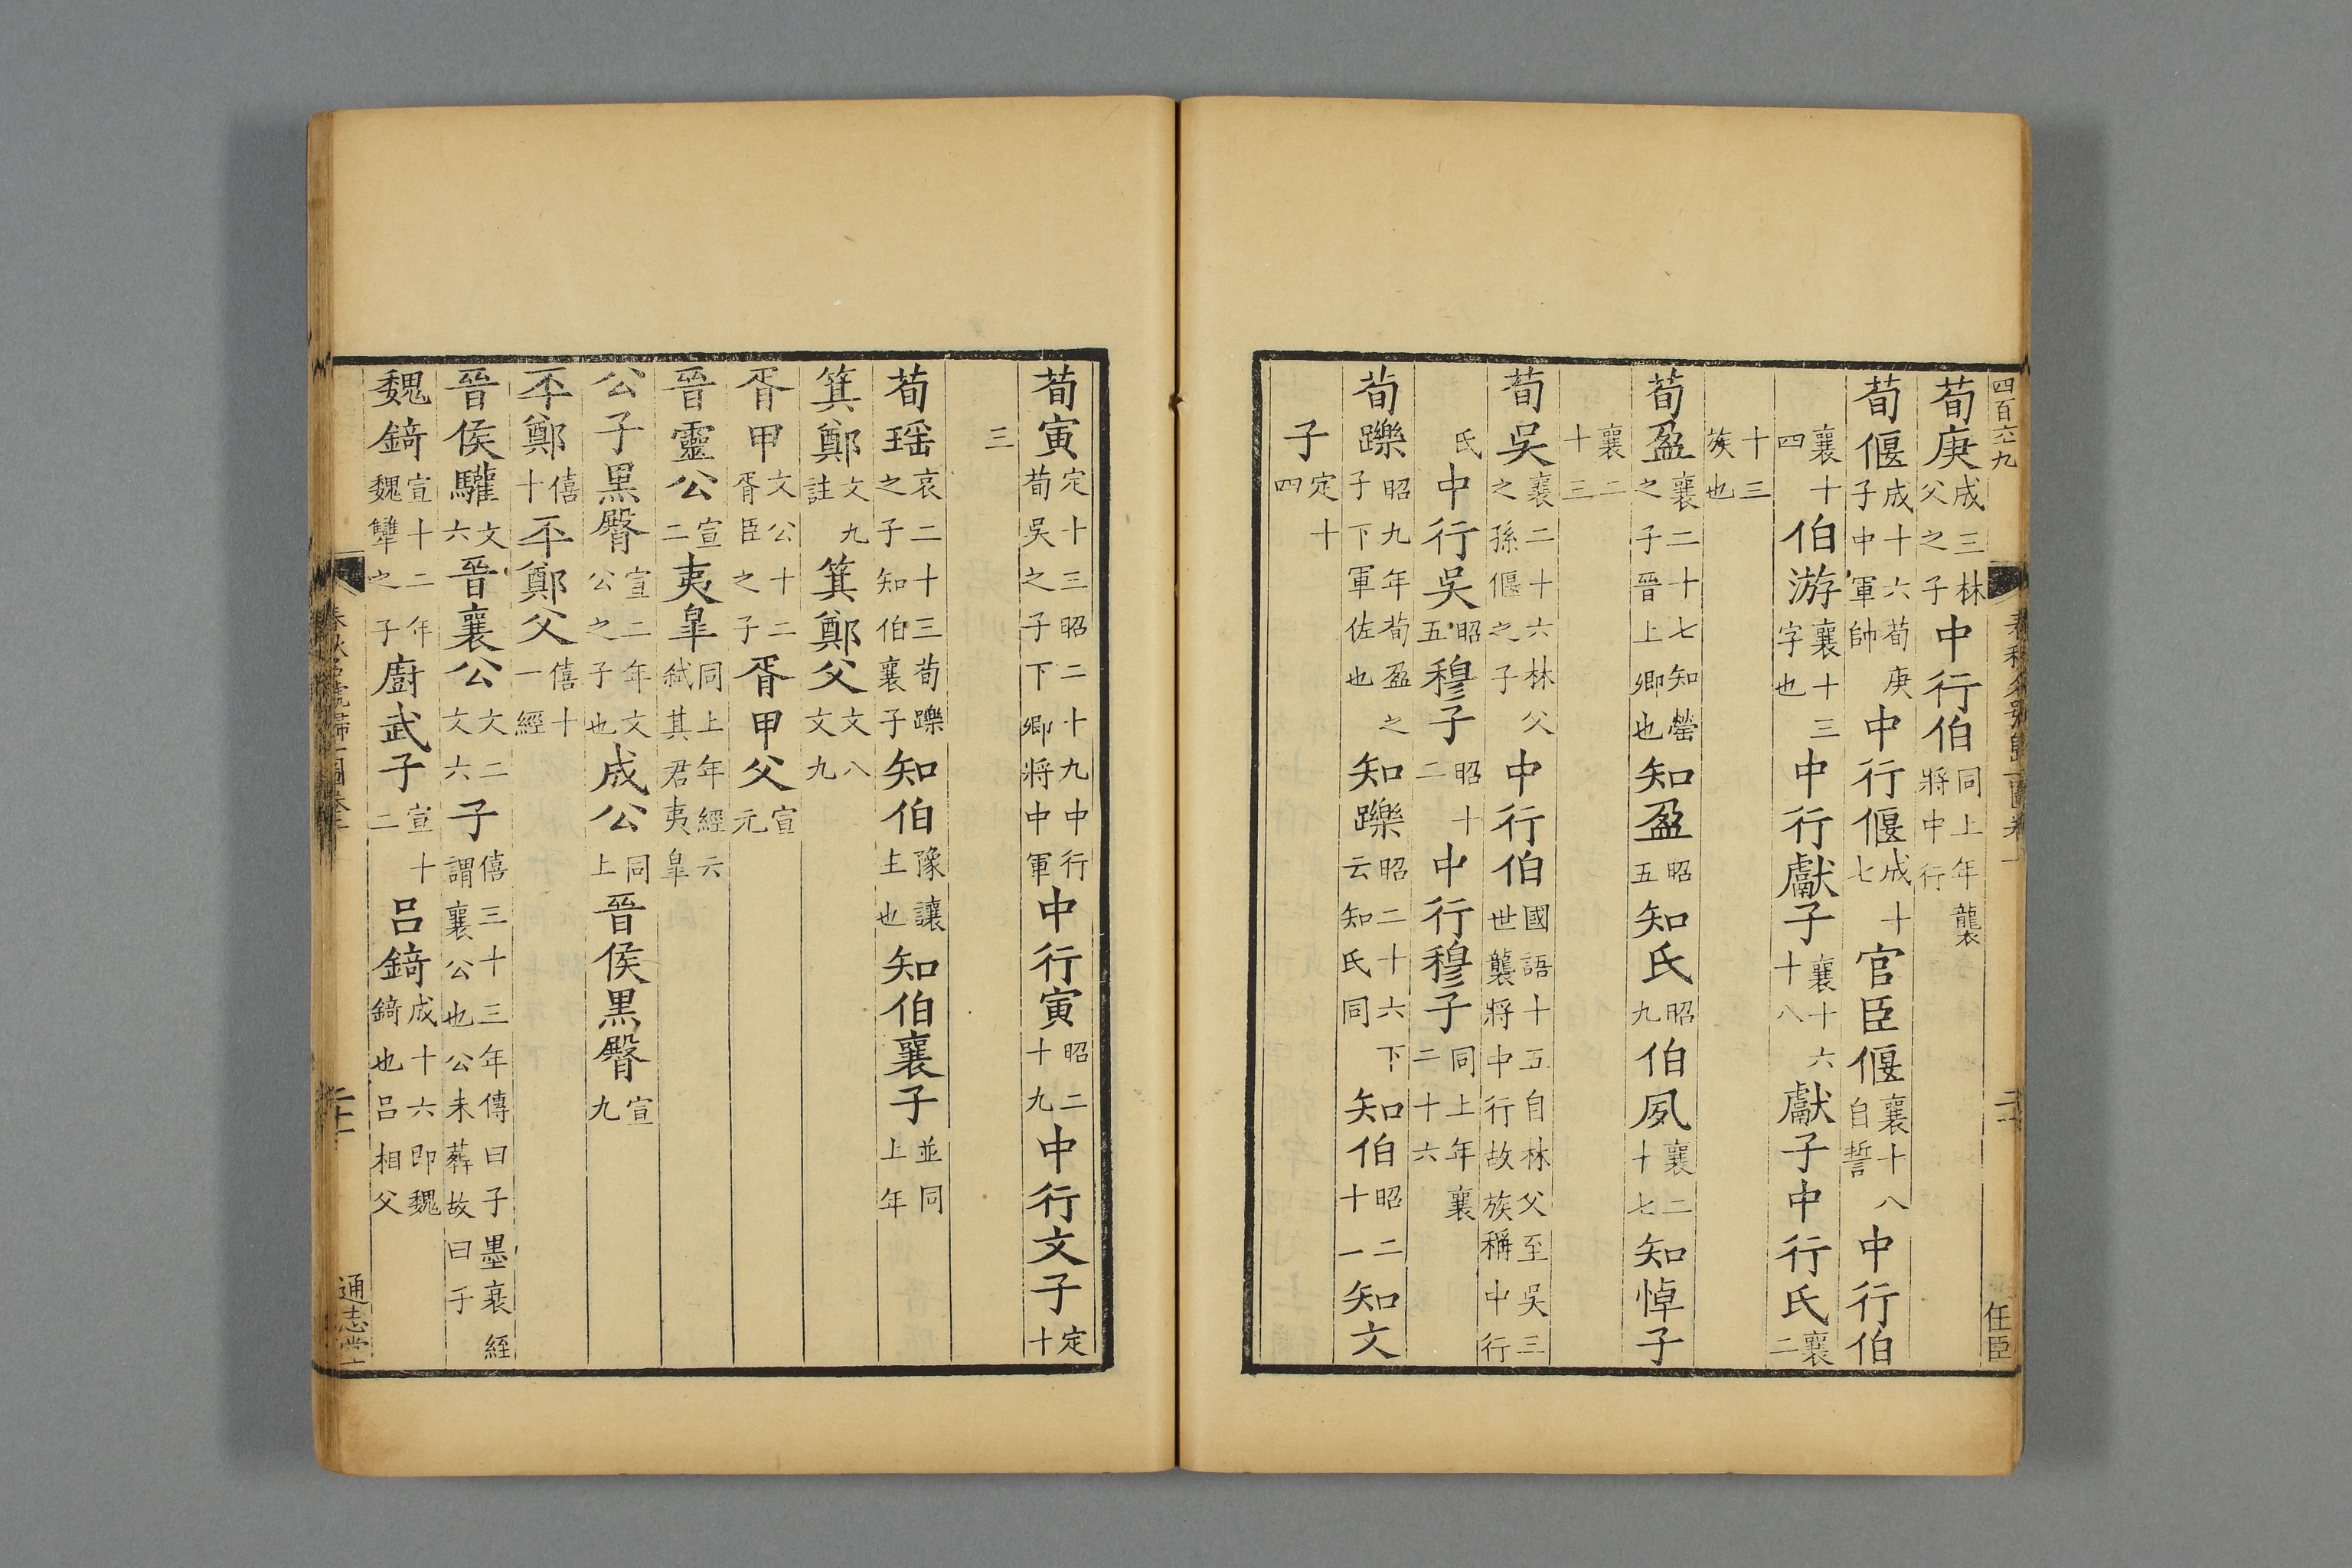 四百六九
荀庚成三林父之子中行伯同上年襲將中行
荀偃成十六荀庚子中軍帥中行偃成十七官臣偃襄十八自誓中行伯
襄十四伯游襄十三字也中行獻子襄十六十八獻子中行氏襄二
十三族也
荀盈襄二十七知罃之子晉上卿也知盈昭五知氏昭九伯夙襄二十七知悼子
襄二十三
荀吳襄二十六林父之孫偃之子中行伯國語十五自林父至吳三世襲將中行故族稱中行
氏中行吳昭五穆子昭十二中行穆子同上年襄二十六
荀躒昭九年荀盈之子下軍佐也知躒昭二十六下云知氏同知伯昭二十一知文
子定十四
任臣
荀寅定十三昭二十九中行荀吳之子下卿將中軍中行寅昭二十九中行文子定十
三
荀瑶哀二十三荀躒之子知伯襄子知伯豫讓主也知伯襄子並同上年
箕鄭文九註箕鄭父文八文九
胥甲文公十二胥臣之子胥甲父宣元
晉靈公宣二夷皐同上年經云弒其君夷皐
公子黒臀宣二年文公之子也成公同上晉侯黒臀宣九
㔻鄭僖十㔻鄭父僖十一經
晉侯驩文六晉襄公文二文六子僖三十三年傳曰子墨衰絰謂襄公也公未葬故曰子
魏錡宣十二年魏犨之子廚武子宣十二呂錡成十六即魏錡也呂相父
春秋名號歸一圖卷上
通志堂